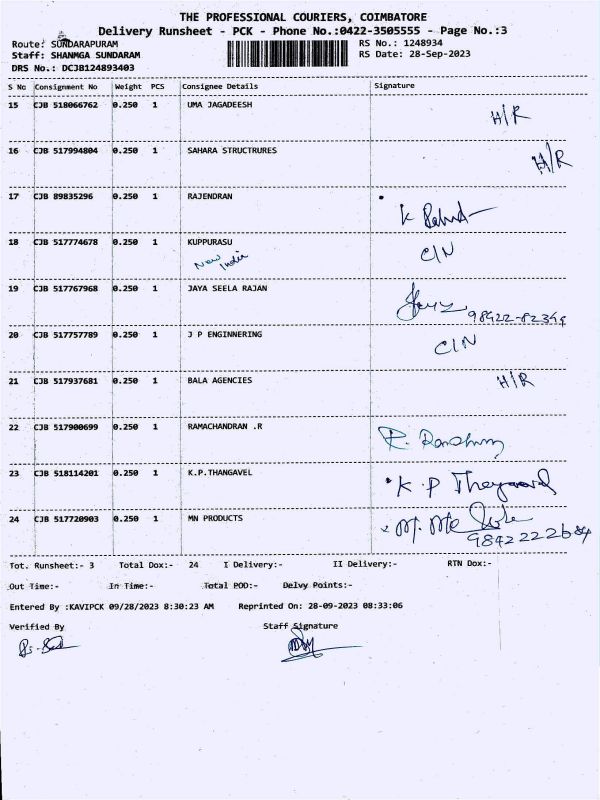 THE PROFESSIONAL COURIERS, COIMBATORE
Delivery Runsheet - PCK - Phone No.:0422-3505555 - Page No.:3
Route: SUNDARAPURAM RS No.: 1248934
Staff: SHANMGA SUNDARAM RS Date: 28-Sep-2023
DRS No.: DCJB124893403
S No Consignment No Weight PCS Consignee Details Signature
15 CJB 518066762 0.250 1 UMA JAGADEESH H/R
16 CJB 517994804 0.250 1 SAHARA STRUCTRURES H/R
17 CJB 89835296 0.250 1 RAJENDRAN K
18 CJB 517774678 0.250 1 KUPPURASU C/N
New India
19 CJB 517767968 0.250 1 JAYA SEELA RAJAN
98422-82344
20 CJB 517757789 0.250 1 J P ENGINNERING C/N
21 CJB 517937681 0.250 1 BALA AGENCIES H/R
22 CJB 517900699 0.250 1 RAMACHANDRAN .R R.
23 CJB 518114201 0.250 1 K.P.THANGAVEL K P
24 CJB 517720903 0.250 1 MN PRODUCTS
9842222684
Tot. Runsheet:- 3 Total Dox:- 24 I Delivery:- II Delivery:- RTN Dox:-
Out Time:- In Time:- Total POD:- Delvy Points:-
Entered By :KAVIPCK 09/28/2023 8:30:23 AM Reprinted On: 28-09-2023 08:33:06
Verified By Staff Signature